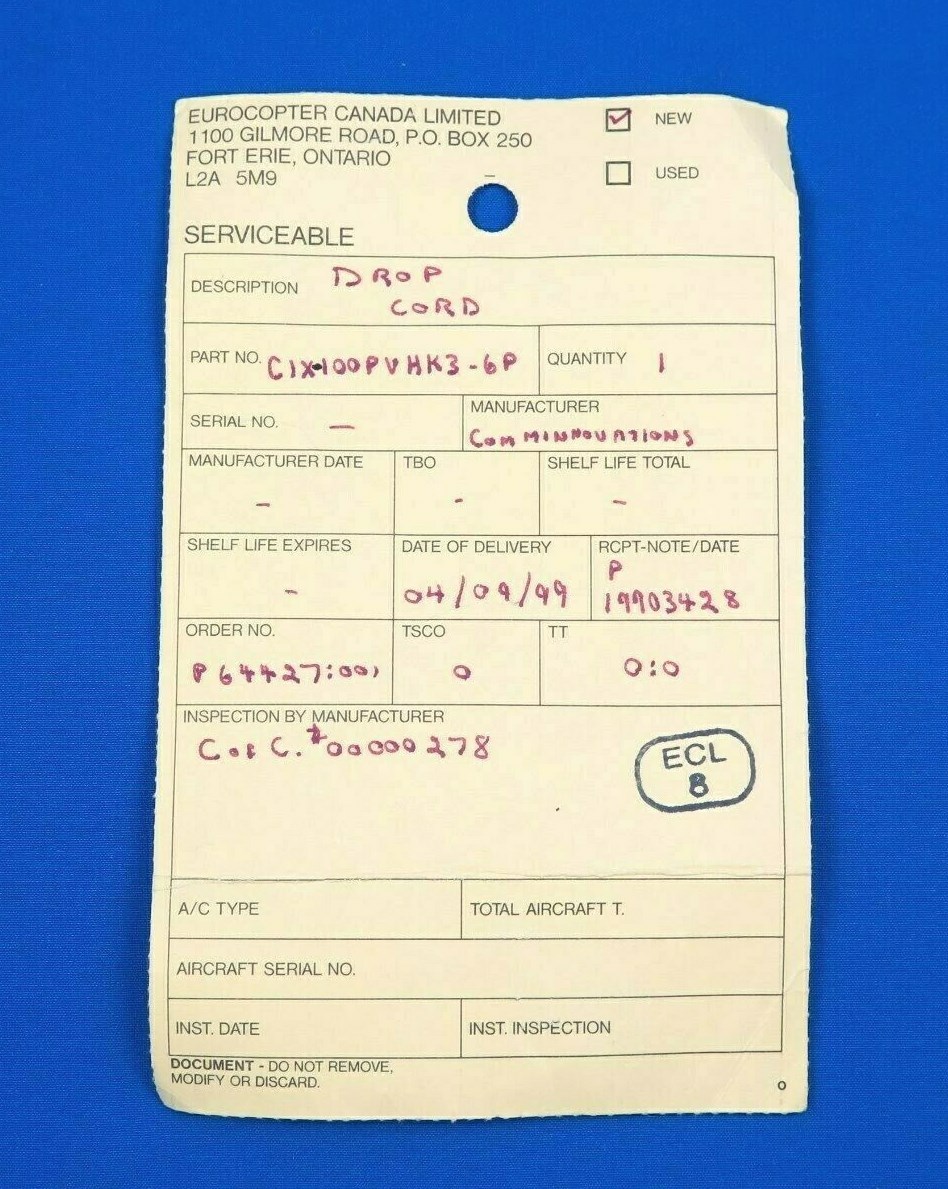 EUROCOPTER CANADA LIMITED
1100 GILMORE ROAD, P.O. BOX 250
FORT ERIE, ONTARIO
L2A 5M9
NEW
USED
SERVICEABLE
DESCRIPTION DROP
CORD
PART NO. C1X100PVHK3-6P
QUANTITY 1
SERIAL NO. —
MANUFACTURER
COMMINNOVATIONS
MANUFACTURER DATE
-
TBO
-
SHELF LIFE TOTAL
-
SHELF LIFE EXPIRES
-
DATE OF DELIVERY
04/09/99
RCPT-NOTE/DATE
P
19903428
ORDER NO.
P64427:001
TSCO
0
TT
0:0
INSPECTION BY MANUFACTURER
C of C. #00000278
ECL
8
A/C TYPE
TOTAL AIRCRAFT T.
AIRCRAFT SERIAL NO.
INST. DATE
INST. INSPECTION
DOCUMENT - DO NOT REMOVE,
MODIFY OR DISCARD.
O